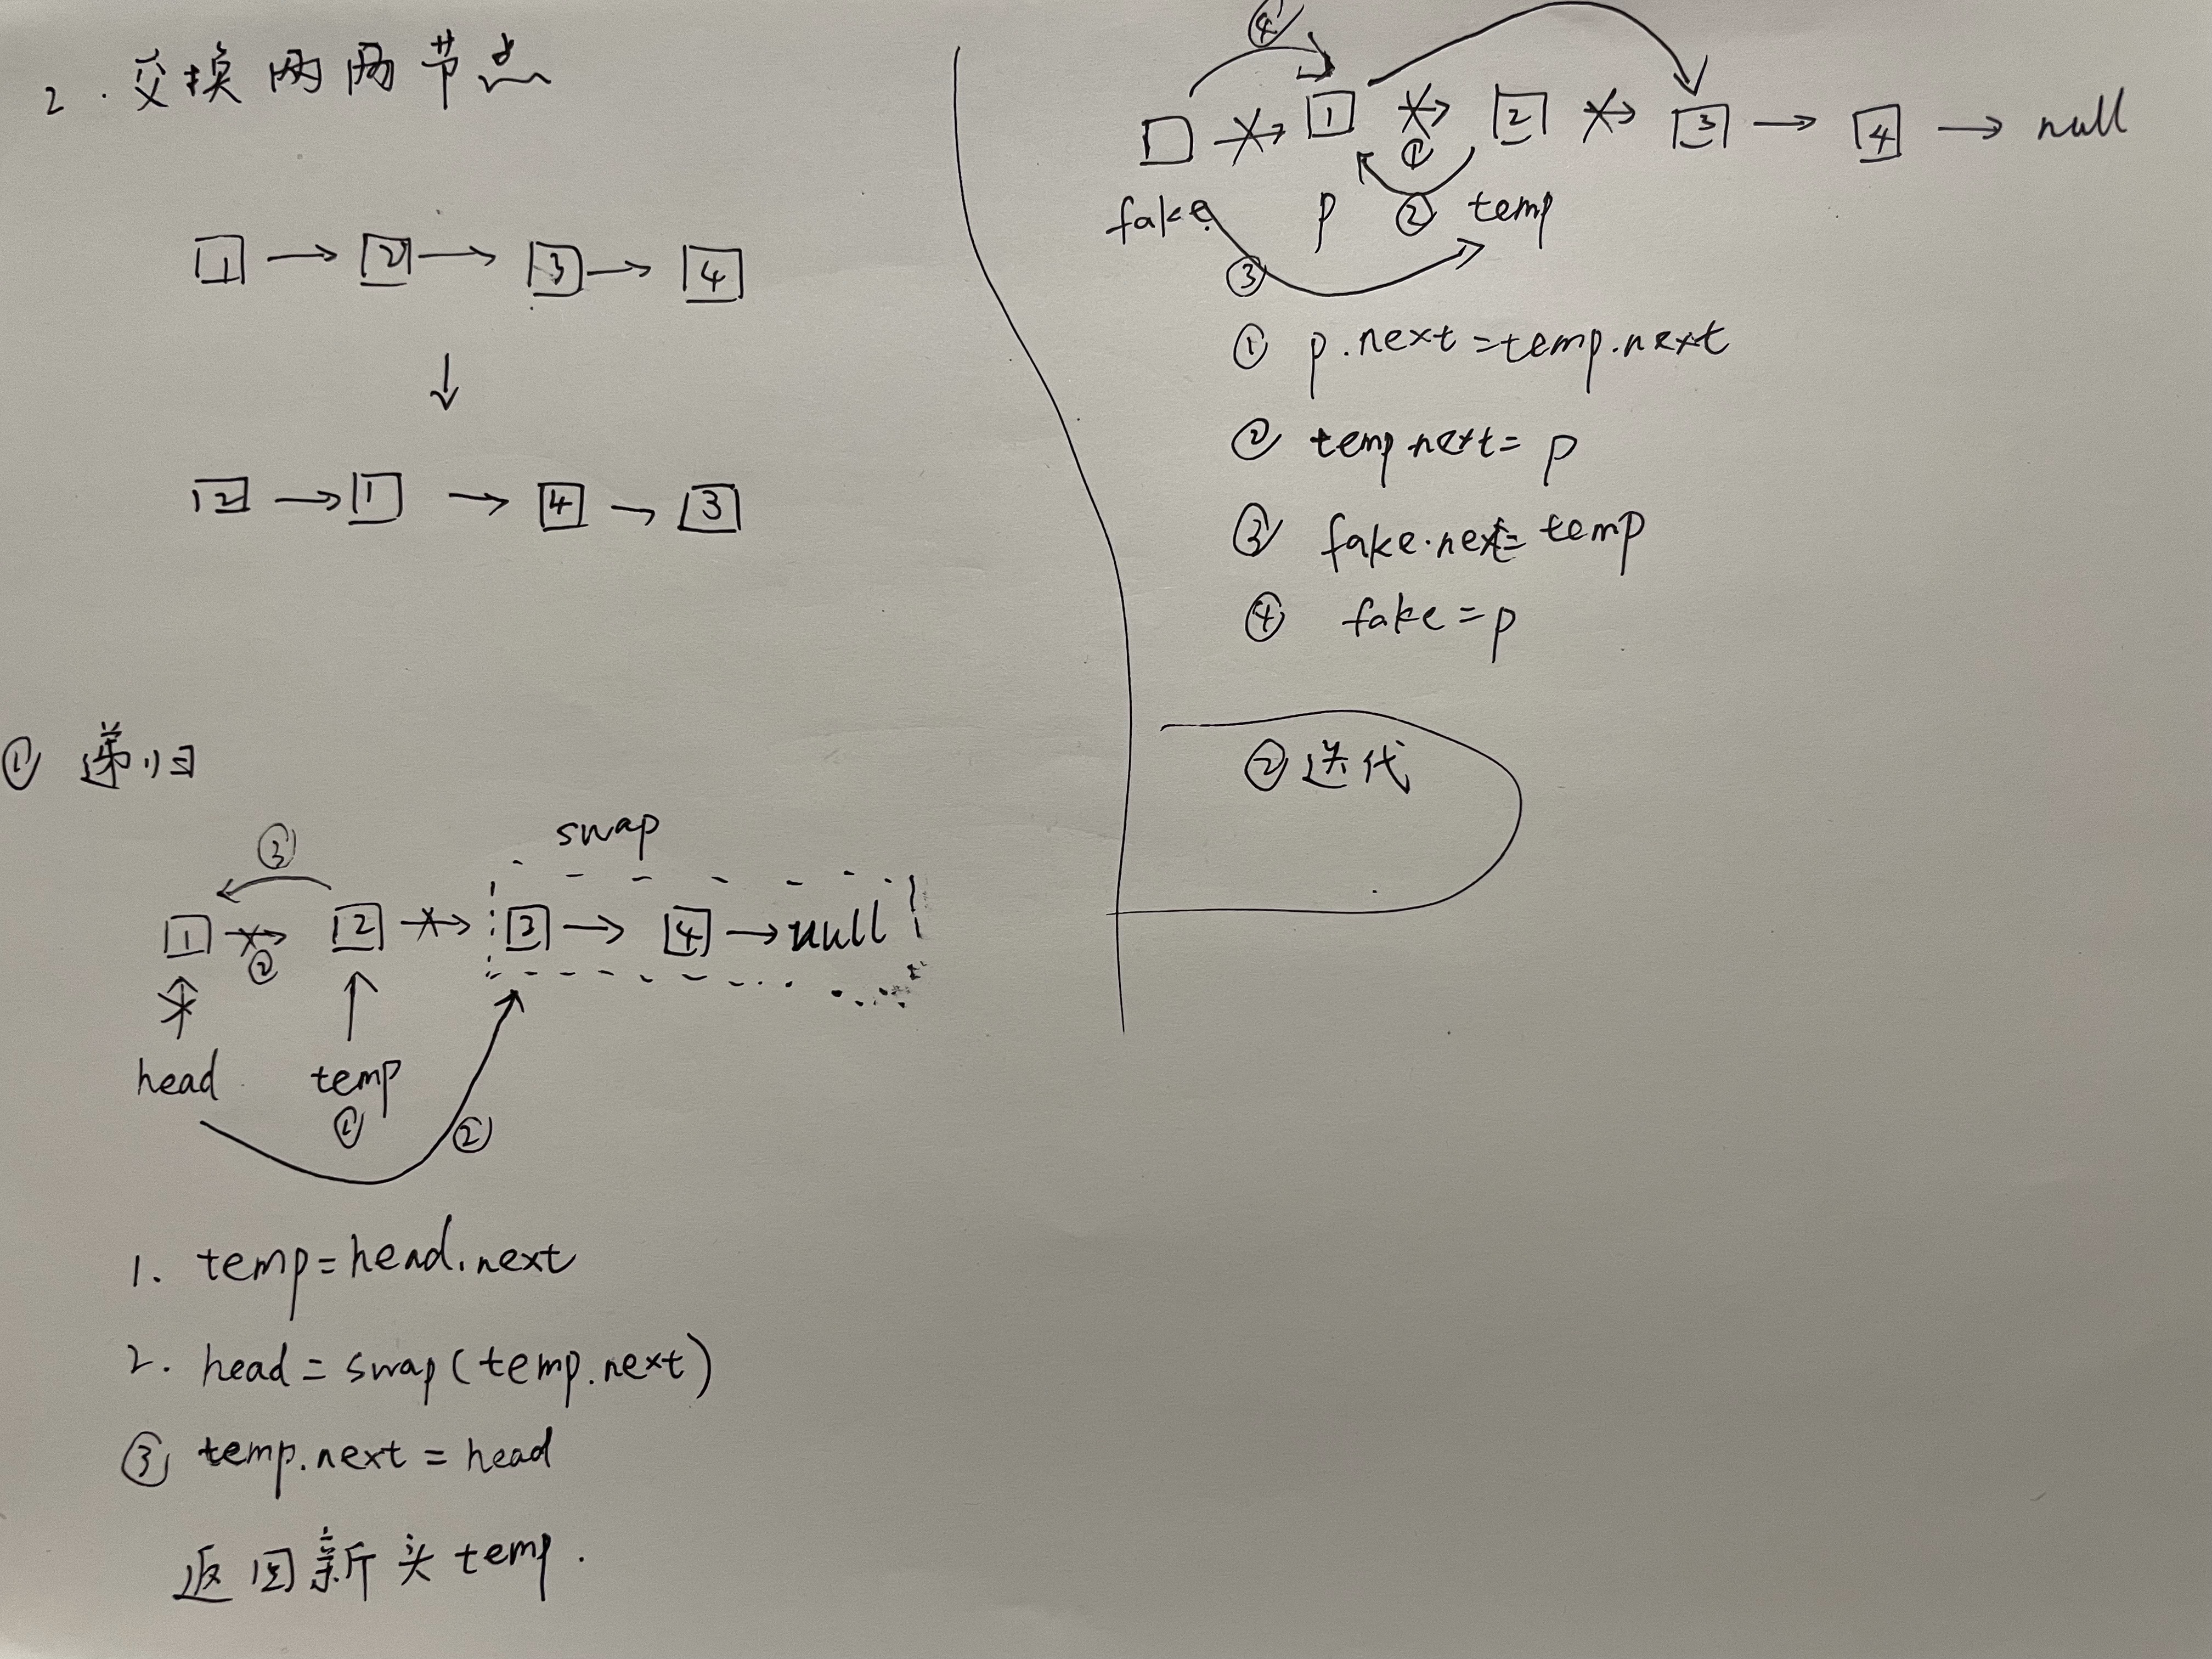 2. 交换两两节点
1 → 2 → 3 → 4
↓
2 → 1 → 4 → 3
① 递归
swap
③
1 → 2 → 3 → 4 → null
②
head temp
① ②
1. temp=head.next
2. head = swap(temp.next)
③ temp.next = head
返回新头temp.
④
1 → 2 → 3 → 4 → null
①
fake p ② temp
③
① p.next=temp.next
② temp next= p
③ fake.next= temp
④ fake=p
②迭代